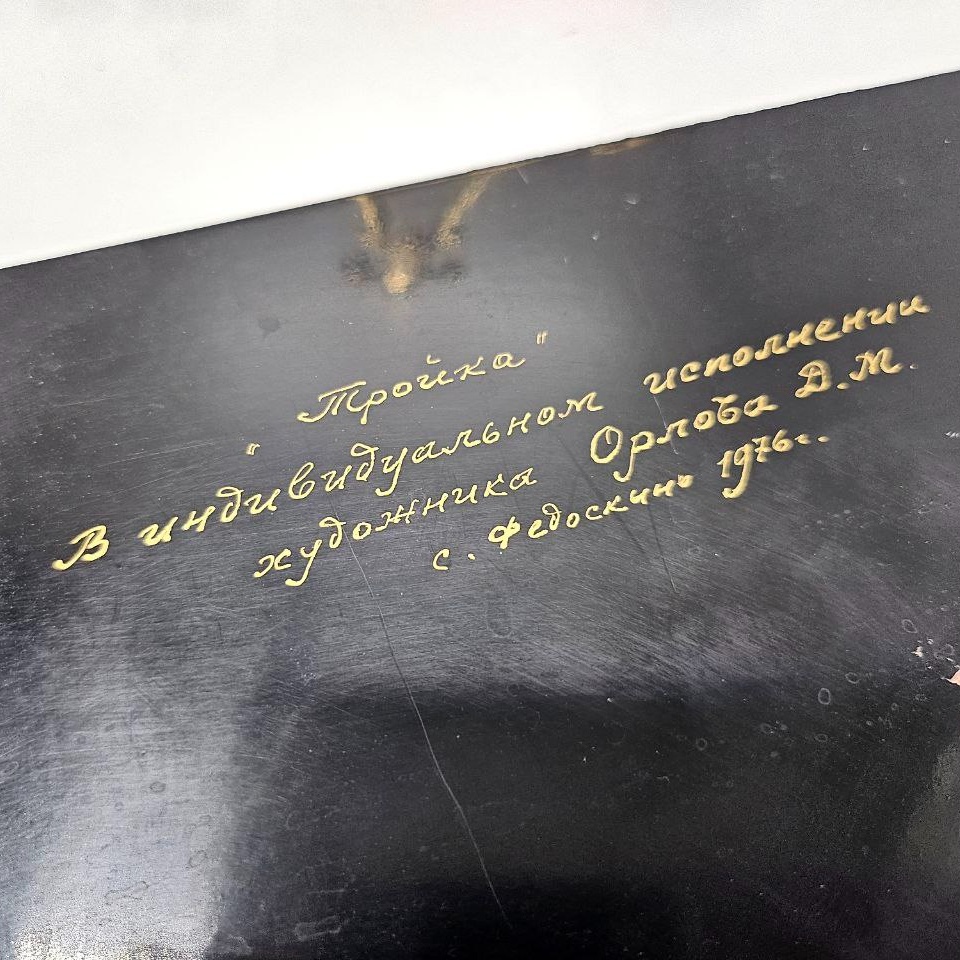 "Тройка"
В индивидуальном исполнении
художника Орлова Д.М.
с. Федоскино 1976г.